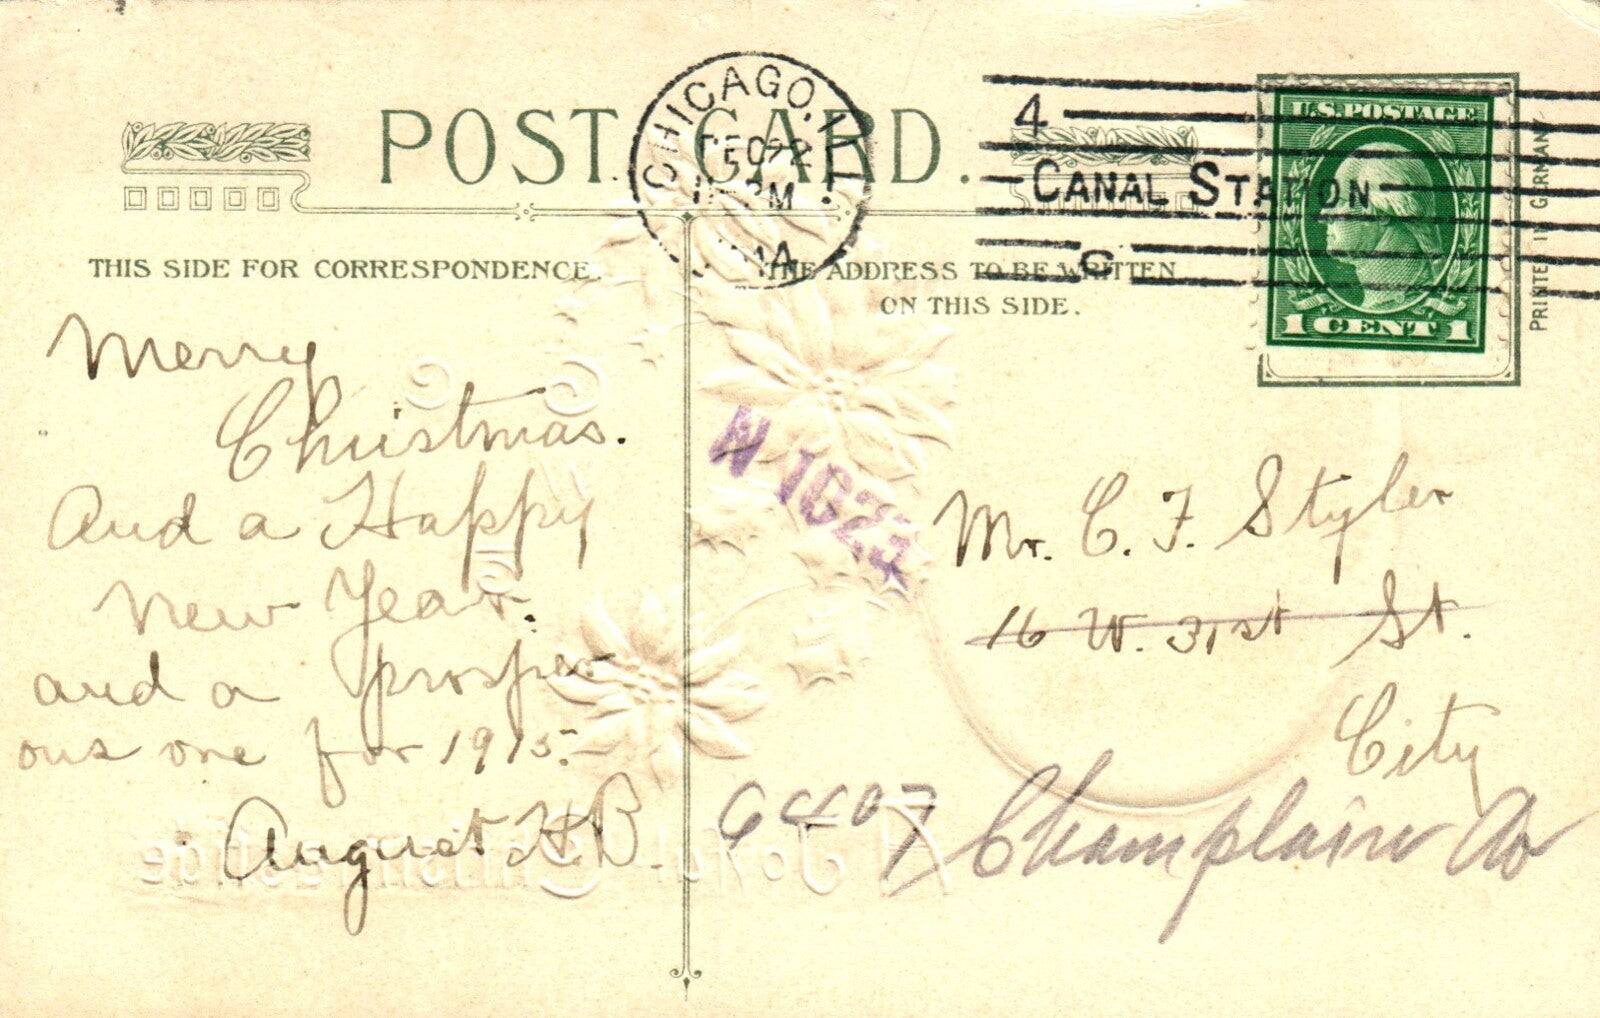 POST CARD.
THIS SIDE FOR CORRESPONDENCE.
THE ADDRESS TO BE WRITTEN
ON THIS SIDE.
CHICAGO, ILL.
DEC 22
PM
4
CANAL STATION
C
U.S. POSTAGE
1 CENT 1
PRINTED IN GERMANY
Merry
Christmas.
And a Happy
New Year.
and a prosper
ous one for 1915.
August H.B.
N 1623
Mr. C. F. Styler
16 W. 31st St.
City
6407 Champlain Av
A Joyful Christmastide